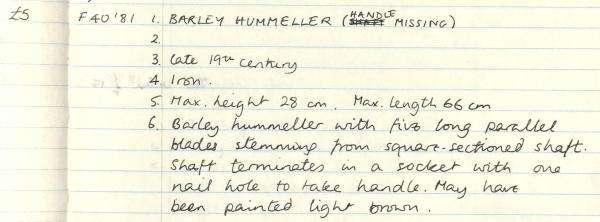 £5 F40'81 1. BARLEY HUMMELLER (HANDLE MISSING)
2.
3. Late 19th century
4. Iron.
5. Max. height 28 cm. Max. length 66 cm
6. Barley hummeller with five long parallel
blades stemming from square-sectioned shaft.
Shaft terminates in a socket with one
nail hole to take handle. May have
been painted light brown.